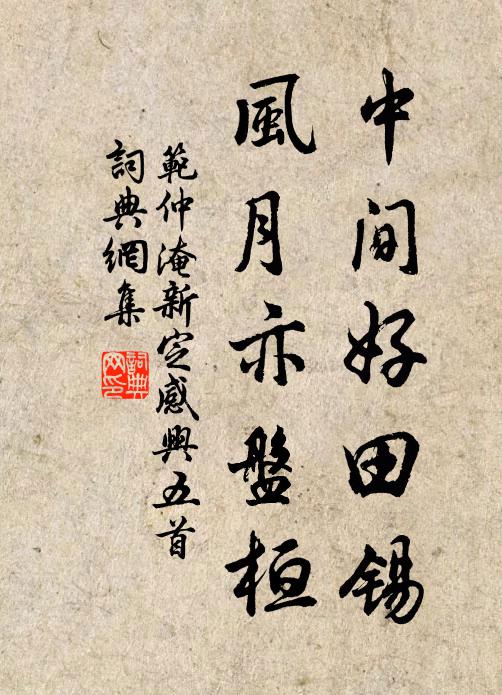 中间好田錫
風月亦盤桓
範仲淹新定感興五首
詞典網集
詞典
网印